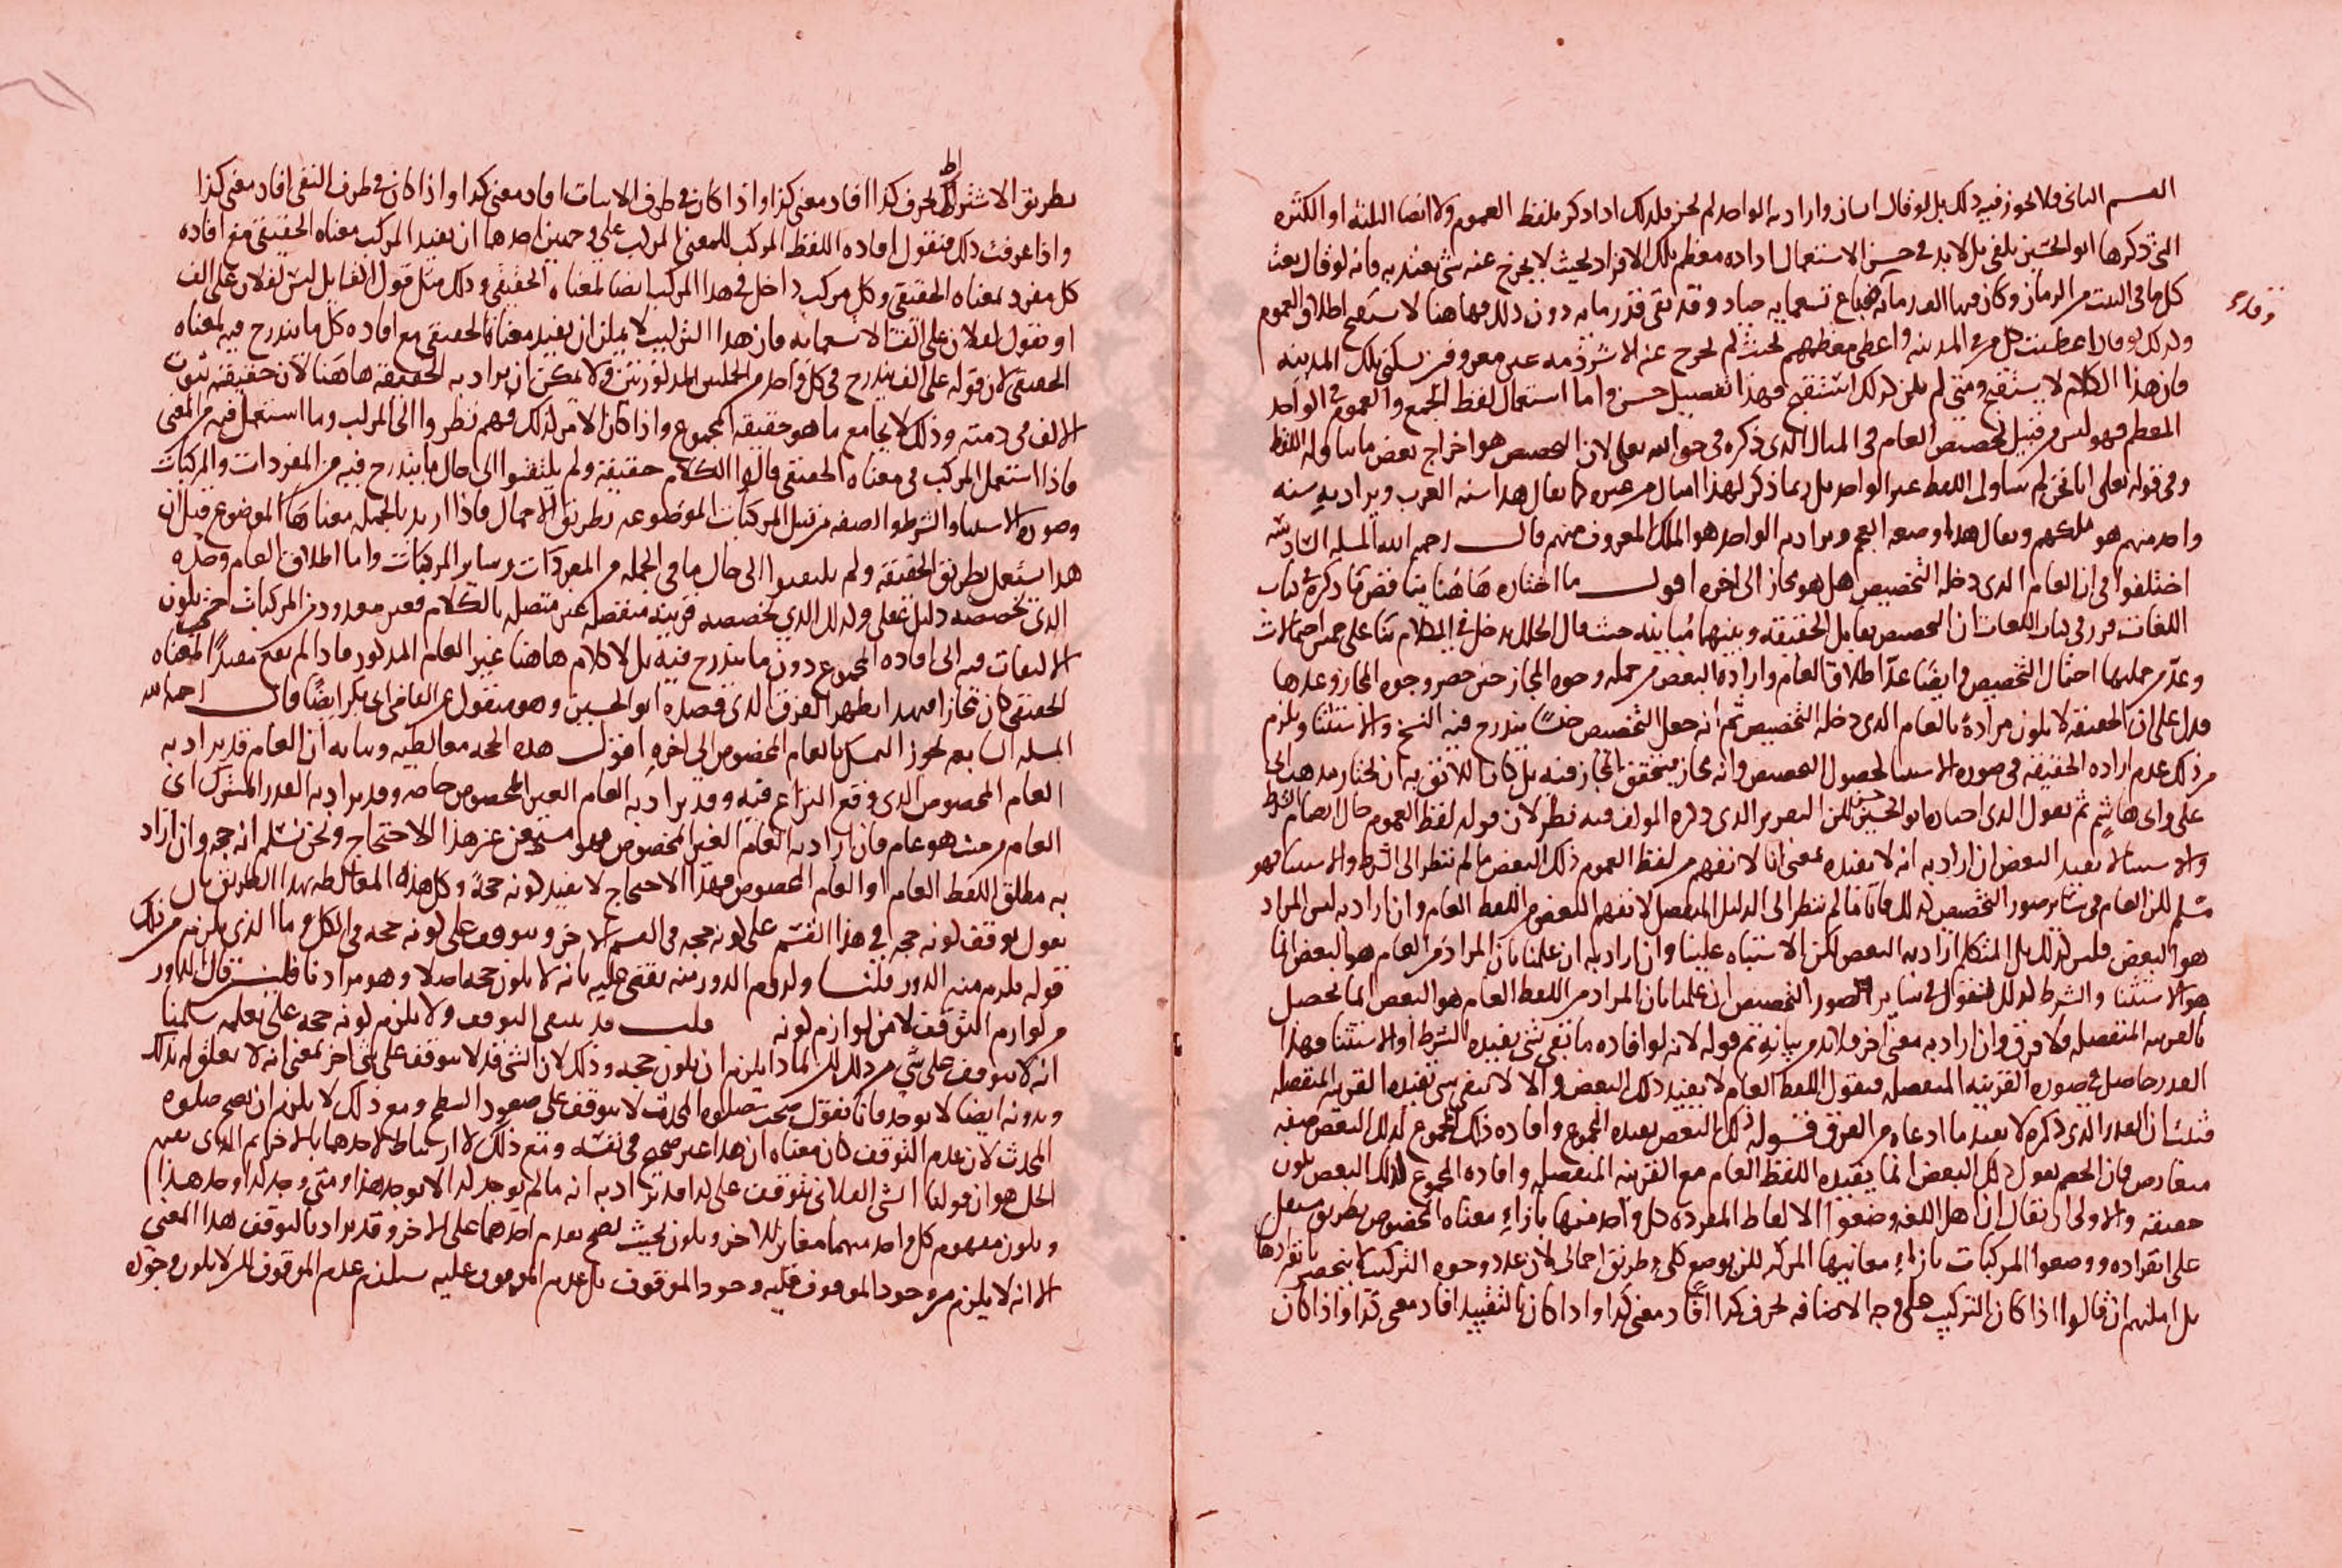 القسم الثاني فلا يجوز فيه ذلك بل لو قال انسان واراد به الواحد لم يجز فلذلك اذا ذكر بلفظ العموم ولا ايضا الثلثة او الكثرة
التي ذكرها ابو الحسين يلغى بل لا بد في حسن الاستعمال اراده معظم تلك الافراد بحيث لا يخرج عنه شي يعتد به فانه لو قال بعت
كل ما في البيت من الرمان وكان فيها الف رمانه فباع تسعمايه صادو قد بقي قدر مايه دون ذلك فهاهنا لا يستقبح اطلاق العموم
ولذلك لو قال اعطيت كل من في المدينه واعطى معظمهم بحيث لم يخرج عنه الا شرذمه غير معروفين بسكنى تلك المدينه
فان هذا الكلام لا يستقبح ومتى لم يكن كذلك استقبح فهذا تفصيل حسن واما استعمال لفظ الجمع والعموم في الواحد
المعظم فهو ليس من قبيل تخصيص العام في المثال الذي ذكره في حق الله تعلى لان التخصيص هو اخراج بعض ما يتناوله اللفظ
وفي قوله تعلى انا نحن لم يتناول اللفظ غير الواحد بل ربما ذكر لهذا امثال من غيره كما يقال هذا سنه العرب ويراد به سنه
واحد منهم هو ملكهم ويقال هذا وصعه العجم ويراد به الواحد هو الملك المعروف منهم قال رحمه الله المسله السادسه
اختلفوا في ان العام الذي دخله التخصيص هل هو مجاز الى اخره اقول ما اختاره هاهنا يناقض ما ذكره في باب
اللغات قرر في باب اللغات ان التخصيص يقابل الحقيقه وبينهما مباينه حيث قال الخلل يدخل في الكلام بنا على خمس احتمالات
وعد من جملتها احتمال التخصيص وايضا عد اطلاق العام وارادة البعض من جمله وجوه المجاز حين حصر وجوه المجاز وعدها
فدل على ان الحقيقه لا يكون مرادة بالعام الذي دخله التخصيص ثم انه جعل التخصيص جنسا يندرج فيه النسخ والاستثنا ويلزم
من ذلك عدم اراده الحقيقه في صوره الاستثنا لحصول التخصيص وانه مجاز فيتحقق المجاز فيه بل كان اللائق به ان يختار مذهب ابي
علي وابي هاشم ثم نقول الذي اختاره ابو الحسين حسن لكن التقرير الذي ذكره المولف فيه نظر لان قوله لفظ العموم حال انضمام الشرط
والاستثنا لا يفيد البعض ان اراد به انه لا يفيده بمعنى انا لا نفهم من لفظ العموم ذلك البعض ما لم ننظر الى الشرط والاستثنا فهو
مسلم لكن العام في سائر صور التخصيص كذلك فانا ما لم ننظر الى الدليل المنفصل لا نفهم البعض من اللفظ العام وان اراد به ليس المراد
هو البعض فليس كذلك بل المتكلم اراد به البعض لكن الاشتباه علينا وان اراد به ان علمنا بان المراد من العام هو البعض انما
هو الاستثنا والشرط كذلك فنقول في سائر صور التخصيص ان علمنا بان المراد من اللفظ العام هو البعض انما يحصل
بالقرينه المنفصله فلا فرق وان اراد به معنى اخر فلا بد من بيانه ثم قوله لانه لو افاده ما بقي شي يفيده الشرط او الاستثنا فهذا
القدر حاصل في صوره القرينه المنفصله فنقول اللفظ العام لا يفيد ذلك البعض والا لا يبقى شي تفيده القرينه المنفصله
فثبت ان القدر الذي ذكره لا يفيد ما ادعاه من الفرق قوله ذلك البعض يفيده المجموع وافاده ذلك المجموع لذلك البعض حقيقه
معارض فان الخصم يقول ذلك البعض انما يفيده اللفظ العام مع القرينه المنفصله وافاده المجموع لذلك البعض يكون
حقيقه والاولى ان يقال ان اهل اللغه وضعوا الالفاظ المفرده كل واحد منها بازاء معناه المخصوص بطريق مستعمل
على انفراده ووضعوا المركبات بازاء معانيها المركبه لكن بوضع كلي وطريق اجمالي لان عدد وجوه التركيب لا ينحصر
بل املنهم ان قالوا اذا كان التركيب على وجه الاضافه بحرف كذا افاد معنى كذا واذا كان بالتقييد افاد معنى كذا واذا كان
بطريق الاشتراط بحرف كذا افاد معنى كذا واذا كان في طرف الاثبات افاد معنى كذا واذا كان في طرف النفي افاد معنى كذا
واذا عرفت ذلك فنقول افاده اللفظ المركب للمعنى المركب على وجهين احدها ان يفيد المركب معناه الحقيقي مع افاده
كل مفرد بمعناه الحقيقي وكل مركب داخل في هذا المركب ايضا لمعناه الحقيقي وذلك مثل قول القايل ليس لفلان علي الف
او يقول لفلان علي الف الا تسعمايه فان هذا التركيب لا يمكن ان يفيد معناه الحقيقي مع افاده كل ما يندرج فيه لمعناه
الحقيقي لان قوله علي الف يندرج في كل واحد من الجملتين المذكورتين ولا يمكن ان يراد به الحقيقه هاهنا لان حقيقته ثبوت
الالف في ذمته وذلك لا يجامع ما هو حقيقه المجموع واذا كان الامر كذلك فهم نظروا الى المركب وما استعمل فيه من المعنى
فاذا استعمل المركب في معناه الحقيقي قالوا الكلام حقيقه ولم يلتفتوا الى حال ما يندرج فيه من المفردات والمركبات
وصوره الاستثنا والشرط والصفه من قبيل المركبات الموضوعه بطريق الاجمال فاذا اريد بالجمله معناها الموضوع قيل ان
هذا يستعمل بطريق الحقيقه ولم يلتفتوا الى حال ما في الجمله من المفردات وسائر المركبات واما اطلاق العام وحده
الذي تخصصه دليل عقلي وكذلك الذي يخصصه قرينه منفصله غير متصله بالكلام فغير معدود من المركبات حتى يكون
الالتفات فيه الى افاده المجموع دون ما يندرج فيه بل لا كلام هاهنا غير العام المذكور فاذا لم يقع مفيدا لمعناه
الحقيقي كان مجازا فبهذا يظهر الفرق الذي قصده ابو الحسين وهو منقول عن القاضي ابي بكر ايضا قال رحمه الله
المسله السابعه يجوز التمسك بالعام المخصوص الى اخره اقول هذه الحجه مغالطيه وبيانه ان العام قد يراد به
العام المخصوص الذي وقع النزاع فيه وقد يراد به العام الغير المخصوص خاصه وقد يراد به القدر المشترك اي
العام من حيث هو عام فان اراد به العام الغير المخصوص فهو مستغن عن هذا الاحتجاج ونحن نسلم انه حجه وان اراد
به مطلق اللفظ العام او العام المخصوص فهذا الاحتجاج لا يفيد كونه حجة وكل هذه المغالطه بهذا الطريق بان
نقول توقف كونه حجه في هذا القسم على كونه حجه في القسم الاخر ويتوقف على كونه حجه في الكل وما الذي يلزم من ذلك
قوله يلزم منه الدور قلنا ولزوم الدور منه يقضي عليه بانه لا يكون حجه اصلا وهو مرادنا فلئن قال الدور
من لوازم التوقف لا من لوازم كونه قلت قد ينتفي التوقف ولا يلزم كونه حجه على نعلمه سلمنا
انه لا يتوقف على شي من ذلك لكن لماذا يلزم ان يكون حجه وذلك لان الشي قد لا يتوقف على شي اخر بمعنى انه لا تعلق له بذلك
وبدونه ايضا لا يوجد فانا نقول صحه صلوه المحدث لا يتوقف على صعود السطح ومع ذلك لا يلزم ان يصح صلوه
المحدث لان عدم التوقف كان معناه ان هذا غير صحيح في نفسه ومع ذلك لا ارتباط لاحدهما بالاخر ثم الذي يعين
الحل هو ان قولنا الشي الفلاني يتوقف على كذا قد يراد به انه ما لم يوجد كذا لا يوجد هذا ومتى وجد كذا وجد هذا
ويكون مفهوم كل واحد منهما مغايرا للاخر ويكون بحيث يصح تقدم احدهما على الاخر وقد يراد بالتوقف هذا المعنى
الا انه لا يلزم من وجود الموقوف عليه وجود الموقوف بل عدم الموقوف عليه يستلزم عدم الموقوف لكن لا يكون وجوده